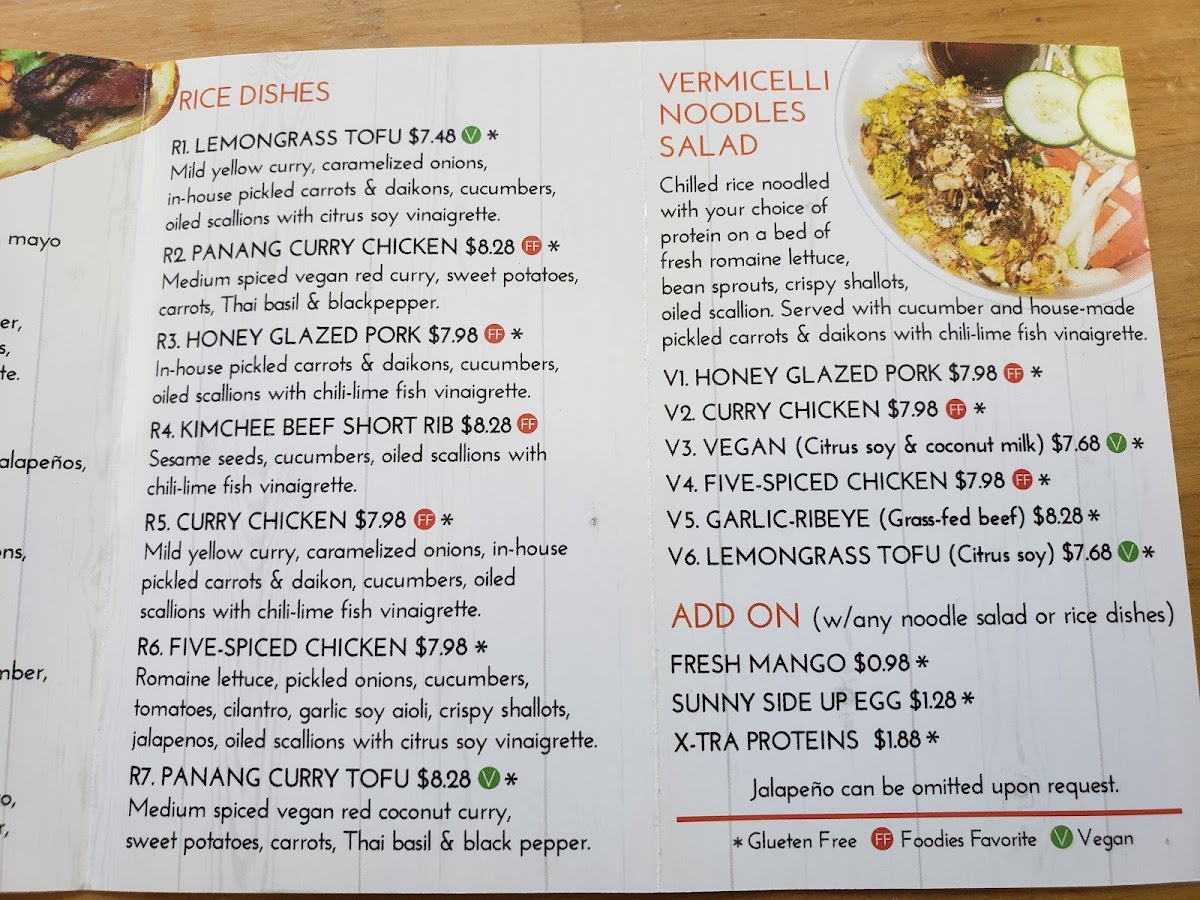 mayo
er,
s,
te.
alapeños,
ons,
mber,
o,
r,
RICE DISHES
R1. LEMONGRASS TOFU $7.48 V *
Mild yellow curry, caramelized onions,
in-house pickled carrots & daikons, cucumbers,
oiled scallions with citrus soy vinaigrette.
R2. PANANG CURRY CHICKEN $8.28 FF *
Medium spiced vegan red curry, sweet potatoes,
carrots, Thai basil & blackpepper.
R3. HONEY GLAZED PORK $7.98 FF *
In-house pickled carrots & daikons, cucumbers,
oiled scallions with chili-lime fish vinaigrette.
R4. KIMCHEE BEEF SHORT RIB $8.28 FF
Sesame seeds, cucumbers, oiled scallions with
chili-lime fish vinaigrette.
R5. CURRY CHICKEN $7.98 FF *
Mild yellow curry, caramelized onions, in-house
pickled carrots & daikon, cucumbers, oiled
scallions with chili-lime fish vinaigrette.
R6. FIVE-SPICED CHICKEN $7.98 *
Romaine lettuce, pickled onions, cucumbers,
tomatoes, cilantro, garlic soy aioli, crispy shallots,
jalapenos, oiled scallions with citrus soy vinaigrette.
R7. PANANG CURRY TOFU $8.28 V *
Medium spiced vegan red coconut curry,
sweet potatoes, carrots, Thai basil & black pepper.
VERMICELLI
NOODLES
SALAD
Chilled rice noodled
with your choice of
protein on a bed of
fresh romaine lettuce,
bean sprouts, crispy shallots,
oiled scallion. Served with cucumber and house-made
pickled carrots & daikons with chili-lime fish vinaigrette.
V1. HONEY GLAZED PORK $7.98 FF *
V2. CURRY CHICKEN $7.98 FF *
V3. VEGAN (Citrus soy & coconut milk) $7.68 V *
V4. FIVE-SPICED CHICKEN $7.98 FF *
V5. GARLIC-RIBEYE (Grass-fed beef) $8.28 *
V6. LEMONGRASS TOFU (Citrus soy) $7.68 V *
ADD ON (w/any noodle salad or rice dishes)
FRESH MANGO $0.98 *
SUNNY SIDE UP EGG $1.28 *
X-TRA PROTEINS $1.88 *
Jalapeño can be omitted upon request.
* Glueten Free FF Foodies Favorite V Vegan